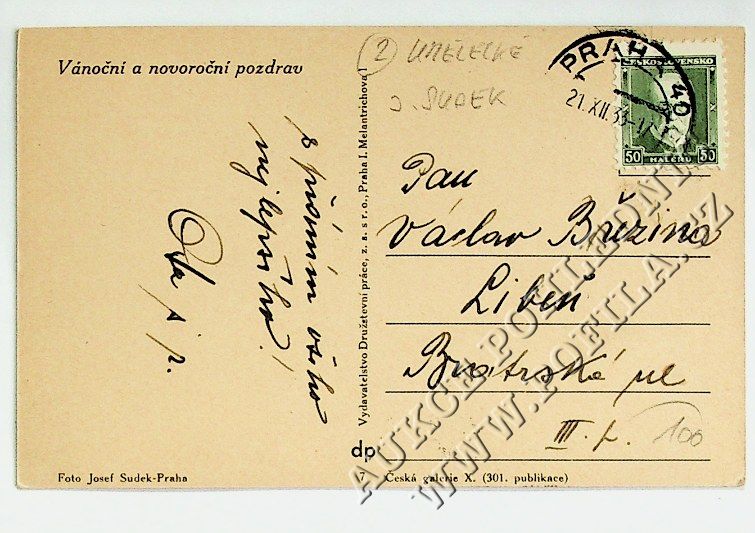 Vánoční a novoroční pozdrav
s přáním všeho
nejlepšího!
Ota
Foto Josef Sudek-Praha
Vydavatelstvo Družstevní práce, z. s. s r. o., Praha I. Melantrichova
dp
7 Česká galerie X. (301. publikace)
2 UMĚLECKÉ
J. SUDEK
PRAHA 40
21.XII.33-17
ČESKOSLOVENSKO
50 HALÉŘŮ 50
Pan
Václav Březina
Libeň
Bratrská ul
III. p.
100
AUKCE POHLEDNIC
WWW.POFILA.CZ